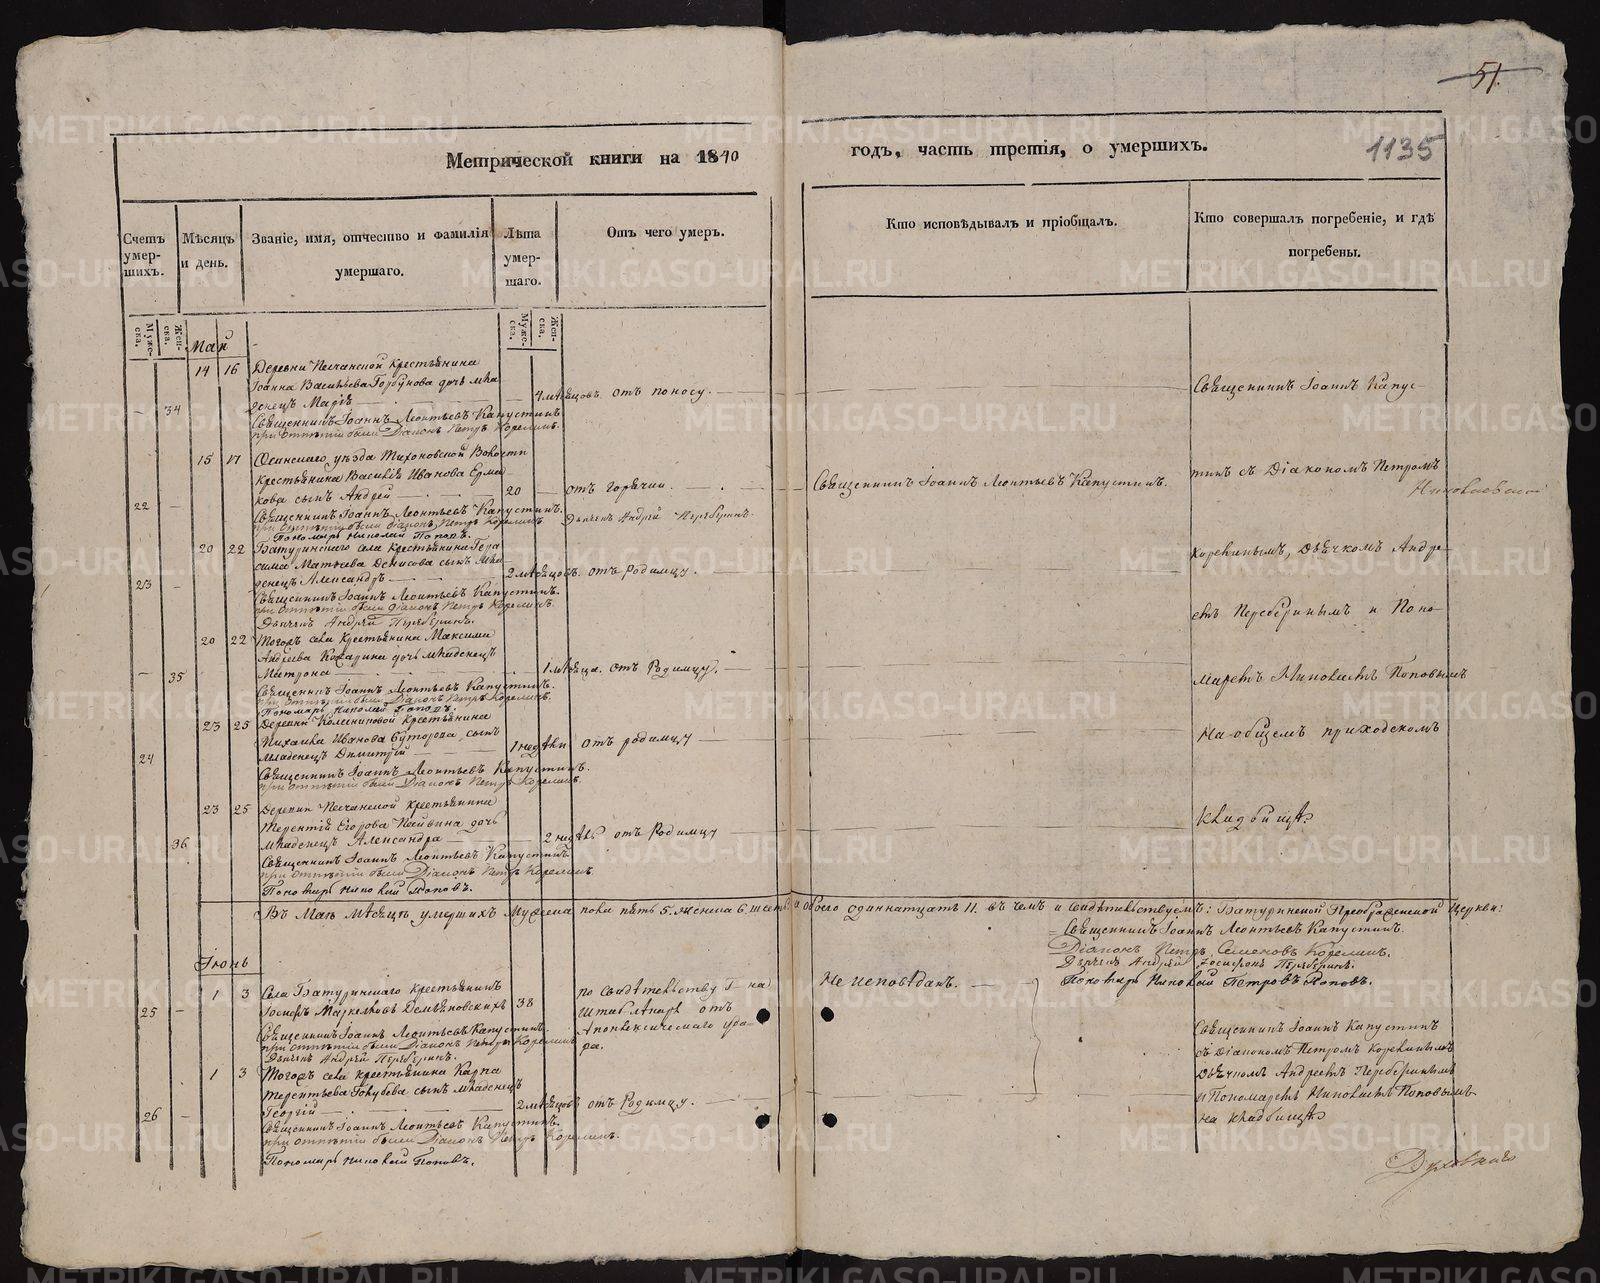 51.
1135
Метрической книги на 1840
годъ, часть третія, о умершихъ.
Счетъ умер-шихъ.
Мѣсяцъ и день.
Званіе, имя, отчество и фамилія умершаго.
Лѣта умер-шаго.
Отъ чего умеръ.
Кто исповѣдывалъ и пріобщалъ.
Кто совершалъ погребеніе, и гдѣ погребены.
Муже-ска.
Жен-ска.
Муже-ска.
Жен-ска.
Май
14 16 Деревни Песчанской крестьянина
Іоанна Васильева Горбунова дочь мла
денецъ Марія
— 34 4 мѣсяцовъ отъ поносу.
Священникъ Іоаннъ Леонтьевъ Капустинъ.
при отпѣтіи были Діаконъ Петръ Корелинъ.
15 17 Осинскаго уѣзда Тихоновской Волости
крестьянина Василія Иванова Ерма
кова сынъ Андрей
22 — 20 — отъ горячки.
Священникъ Іоаннъ Леонтьевъ Капустинъ.
при отпѣтіи были Діаконъ Петръ Корелинъ Дьячекъ Андрей
Пономарь Николай Поповъ.
20 22 Батуринскаго села крестьянина Гера
сима Матвѣева Денисова сынъ мла
денецъ Александръ
23 — 2 мѣсяцовъ. отъ родимцу.
Священникъ Іоаннъ Леонтьевъ Капустинъ.
при отпѣтіи были Діаконъ Петръ Корелинъ
Дьячекъ Андрей
20 22 Тогожъ села крестьянина Максима
Андреева дочь младенецъ
Матрона
— 35 1 мѣсяца. отъ Родимцу.
Священникъ Іоаннъ Леонтьевъ Капустинъ.
при отпѣтіи были Діаконъ Петръ Корелинъ.
Пономарь Николай Поповъ.
23 25 Деревни Колесниковой крестьянина
Михаила Иванова Буторова сынъ
младенецъ Димитрій
24 1 недѣли отъ родимцу
Священникъ Іоаннъ Леонтьевъ Капустинъ.
при отпѣтіи были Діаконъ Петръ Корелинъ.
23 25 Деревни Песчанской крестьянина
Терентія Егорова дочь
младенецъ Александра
36 2 недѣль отъ Родимцу
Священникъ Іоаннъ Леонтьевъ Капустинъ
при отпѣтіи были Діаконъ Петръ Корелинъ
Пономарь Николай Поповъ.
Священникъ Іоаннъ Леонтьевъ Капустинъ.
Священникъ Іоаннъ Капус
тинъ съ Діакономъ Петромъ
Корелинымъ, Дьячкомъ Андре
емъ и Поно
маремъ Николаемъ Поповымъ
На общемъ приходскомъ
кладбищѣ
Въ Маѣ мѣсяцѣ умершихъ Мужеска пола пять 5. женска 6. шесть а обоего одиннатцать 11. въ чемъ и свидѣтельствуемъ: Батуринской Преображенской Церкви:
Священникъ Іоаннъ Леонтьевъ Капустинъ.
Діаконъ Петръ Семеновъ Корелинъ.
Дьячекъ Андрей
Пономарь Николай Петровъ Поповъ.
Іюнь
1 3 Села Батуринскаго крестьянинъ
Іосифъ Маркеловъ
25 — 38 по свидѣтельству Г на
штабъ лекаря отъ
Апоплексическаго уда
ра.
Священникъ Іоаннъ Леонтьевъ Капустинъ.
при отпѣтіи были Діаконъ Петръ Корелинъ
Дьячекъ Андрей
Не исповѣданъ.
1 3 Тогожъ села крестьянина Карпа
Терентьева Голубева сынъ младенецъ
Георгій
26 — 2 мѣсяцовъ отъ Родимцу.
Священникъ Іоаннъ Леонтьевъ Капустинъ.
при отпѣтіи были Діаконъ Петръ Корелинъ.
Пономарь Николай Поповъ.
Священникъ Іоаннъ Капустинъ
съ Діакономъ Петромъ Корелинымъ
Дьячкомъ Андреемъ
и Пономаремъ Николаемъ Поповымъ
на кладбищѣ
METRIKI.GASO-URAL.RU